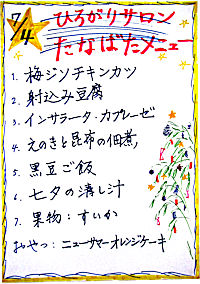 7/4
ひろがりサロン
たなばたメニュー
1. 梅ジソチキンカツ
2. 射込み豆腐
3. インサラータ・カプレーゼ
4. えのきと昆布の佃煮
5. 黒豆ご飯
6. 七夕の清し汁
7. 果物：すいか
おやつ：ニューサマーオレンジケーキ